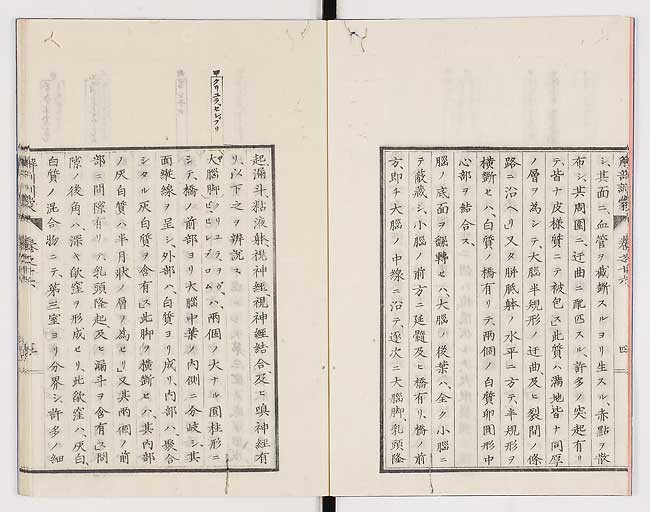 解剖訓蒙 卷之十六 四
シ、其面ニ、血管ヲ截斷スルヨリ生スル、赤點ヲ散
布シ、其周圍ニ、迂曲ニ配匹スル、許多ノ突起有リ
テ、皆ナ皮様質ニテ被包ス、此質ハ滿地皆ナ同厚
ノ層ヲ為シテ、大腦半規形ノ迂曲及ヒ裂間ノ條
路ニ沿ヘリ、又タ胼胝躰ノ水平ニ方テ、半規形ヲ
橫斷セハ、白質ノ橋有リテ、兩個ノ白質卵圓形中
心部ヲ結合ス、
腦ノ底面ヲ飜轉セハ、大腦ノ後葉ハ、全ク小腦ニ
テ蔽蔵シ、小腦ノ前方ニ延髓及ヒ橋有リ、橋ノ前
方、即チ大腦ノ中線ニ沿テ、逐次ニ大腦脚、乳頭隆
起、漏斗、黏液躰、視神經、視神經結合、及ヒ嗅神經有
リ、以下之ヲ辨説ス、
甲クリユラ、セレブリ
大腦脚、ハ、兩個ノ大ナル圓柱形ニ
シテ、橋ノ前部ヨリ大腦中葉ノ内側ニ分岐シ、其
面縱線ヲ呈シ、外部ハ、白質ヨリ成リ、内部ハ、聚合
シタル灰白質ヲ含有ス、此脚ヲ橫斷セハ、其内部
ノ灰白質ハ半月狀ノ層ヲ為セリ、又其兩個ノ前
部ニ間隙有リテ、乳頭隆起及ヒ漏斗ヲ含有ス、間
隙ノ後角ハ、深キ歇窪ヲ形成セリ、此歇窪ハ、灰白、
白質ノ混合物ニテ、第三室ヨリ分界シ、許多ノ細